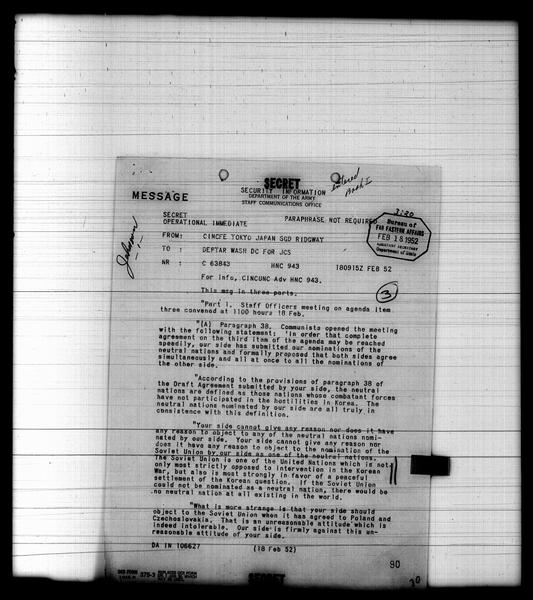 SECRET
SECURITY INFORMATION
DEPARTMENT OF THE ARMY
STAFF COMMUNICATIONS OFFICE
MESSAGE
entered
Book I
SECRET
OPERATIONAL IMMEDIATE
PARAPHRASE NOT REQUIRED
3:20
Bureau of
FAR EASTERN AFFAIRS
FEB 18 1952
Department of State
Johnson
FROM: CINCFE TOKYO JAPAN SGD RIDGWAY
TO : DEPTAR WASH DC FOR JCS
NR : C 63843 HNC 943 180915Z FEB 52
For info, CINCUNC Adv HNC 943.
This msg in three parts.
3
"Part I. Staff Officers meeting on agenda item
three convened at 1100 hours 18 Feb.
"(A) Paragraph 38. Communists opened the meeting
with the following statement: 'In order that complete
agreement on the third item of the agenda may be reached
speedily, our side has submitted our nominations of the
neutral nations and formally proposed that both sides agree
simultaneously and all at once to all the nominations of
the other side.
"According to the provisions of paragraph 38 of
the Draft Agreement submitted by your side, the neutral
nations are defined as those nations whose combatant forces
have not participated in the hostilities in Korea. The
neutral nations nominated by our side are all truly in
consistence with this definition.
"Your side cannot give any reason nor does it have
any reason to object to any of the neutral nations nomi-
nated by our side. Your side cannot give any reason nor
does it have any reason to object to the nomination of the
Soviet Union by our side as one of the neutral nations.
The Soviet Union is one of the United Nations which is not
only most strictly opposed to intervention in the Korean
War, but also is most strongly in favor of a peaceful
settlement of the Korean question. If the Soviet Union
could not be nominated as a neutral nation, there would be
no neutral nation at all existing in the world.
"What is more strange is that your side should
object to the Soviet Union when it has agreed to Poland and
Czechoslovakia. That is an unreasonable attitude which is
indeed intolerable. Our side is firmly against this un-
reasonable attitude of your side.
DA IN 106627 (18 Feb 52)
90
375-3
SECRET
30